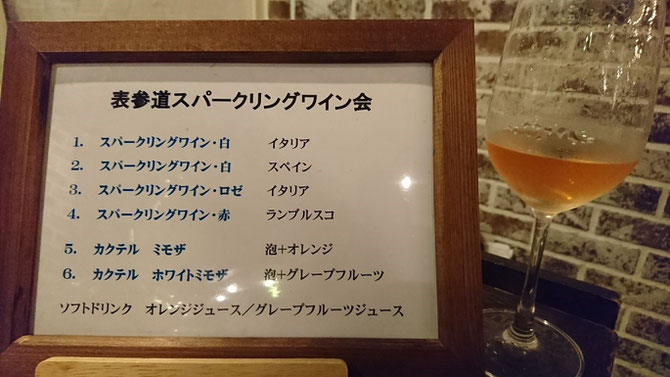 表参道スパークリングワイン会
1. スパークリングワイン・白 イタリア
2. スパークリングワイン・白 スペイン
3. スパークリングワイン・ロゼ イタリア
4. スパークリングワイン・赤 ランブルスコ
5. カクテル ミモザ 泡+オレンジ
6. カクテル ホワイトミモザ 泡+グレープフルーツ
ソフトドリンク オレンジジュース／グレープフルーツジュース